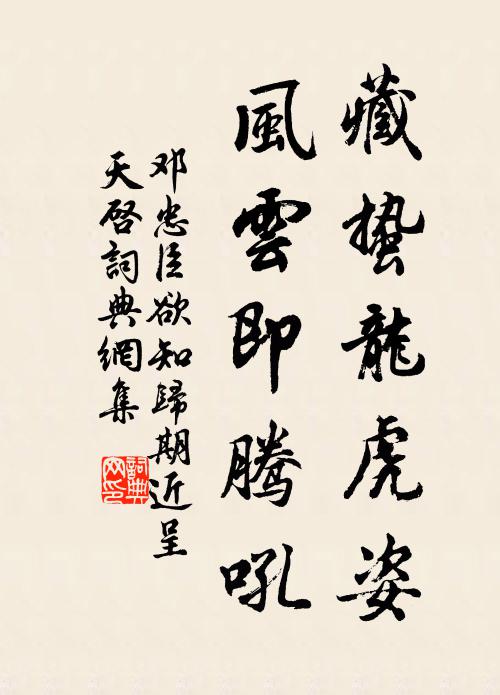 藏蛰龍虎姿
風雲即腾吼
邓忠臣欲知歸期近呈
天启詞典網集
詞典
网印